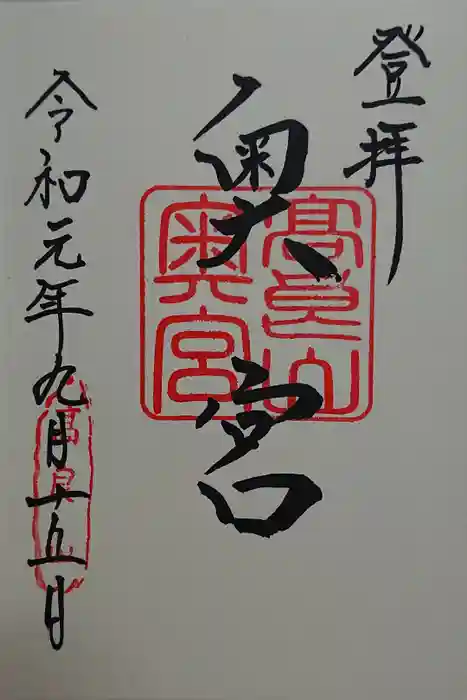 登拝
奥宮
髙良山
奥宮
令和元年九月十五日